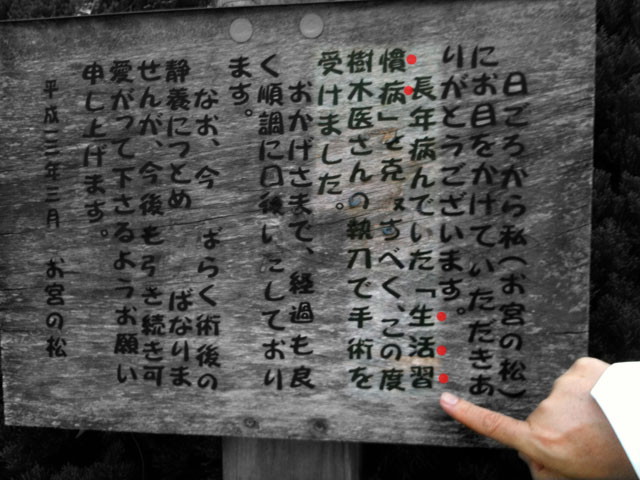 日ごろから私(お宮の松)
にお目をかけていただきあ
りがとうございます。
長年病んでいた「生活習
慣病」を克 すべく、この度
樹木医さんの執刀で手術を
受けました。
おかげさまで、経過も良
く順調に い しており
ます。
なお、今 ばらく術後の
静養につとめ ばなりま
せんが、今後も引き続き可
愛がって下さるようお願い
申し上げます。
平成一三年三月 お宮の松